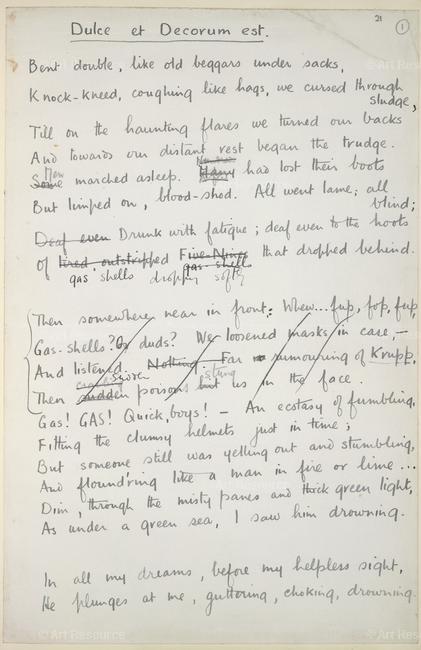 21
1
Dulce et Decorum est.
Bent double, like old beggars under sacks,
Knock-kneed, coughing like hags, we cursed through
sludge,
Till on the haunting flares we turned our backs
And towards our distant rest began the trudge.
Some Men marched asleep. Many had lost their boots
But limped on, blood-shod. All went lame; all
blind;
Deaf even Drunk with fatigue; deaf even to the hoots
Of tired, outstripped Five-Nines that dropped behind.
gas shells dropping softly gas-shells
Then somewhere near in front: Whew... fup, fop, fup,
Gas-shells? Or duds? We loosened masks in case,—
And listened. Nothing. Far rumouring of Krupp.
Then sudden poisons hit us in the face.
Gas! GAS! Quick, boys! — An ecstasy of fumbling,
Fitting the clumsy helmets just in time;
But someone still was yelling out and stumbling,
And flound'ring like a man in fire or lime...
Dim, through the misty panes and thick green light,
As under a green sea, I saw him drowning.
In all my dreams, before my helpless sight,
He plunges at me, guttering, choking, drowning.
© Art Resource
© Art Resource